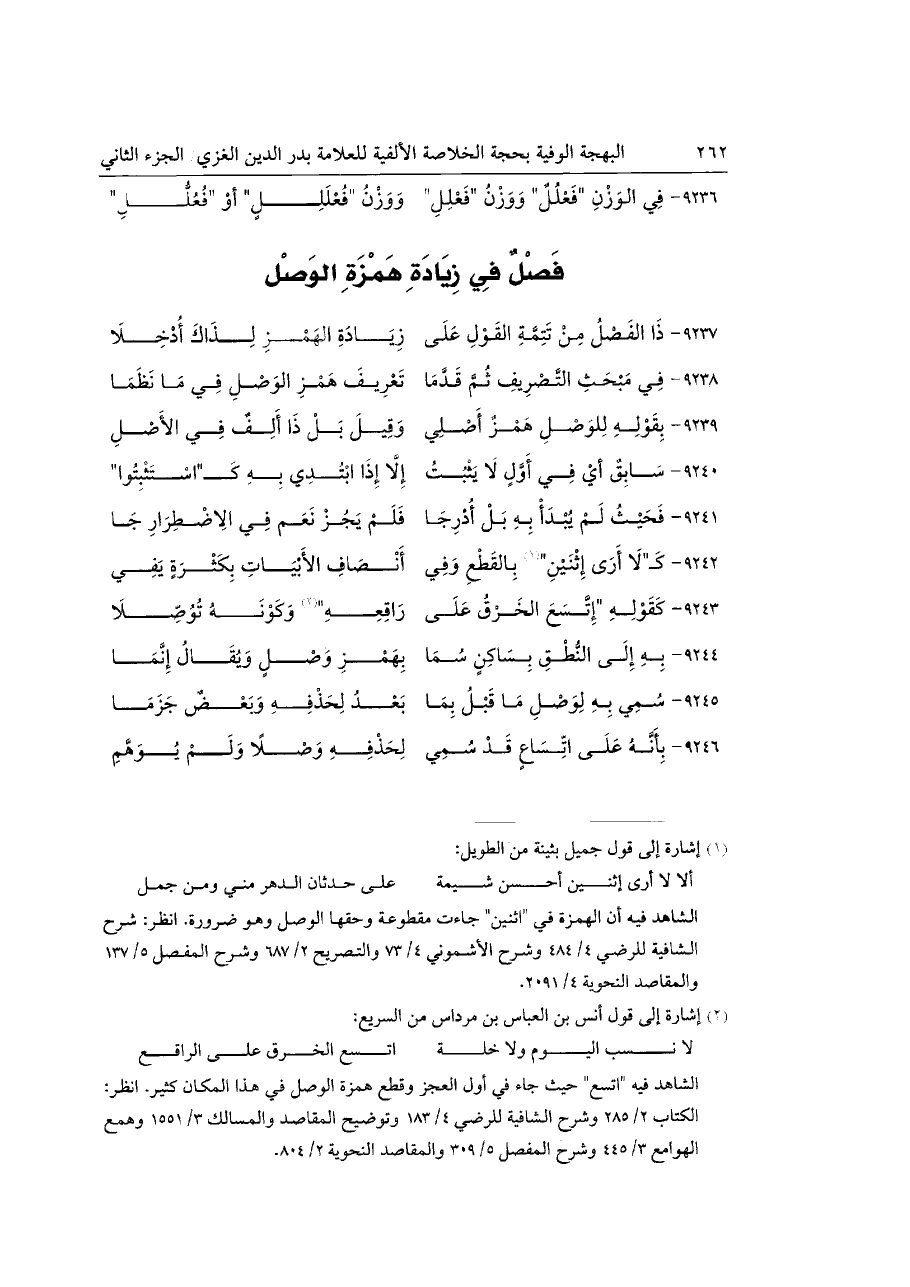 ٢٦٢ البهجة الوفية بحجة الخلاصة الألفية للعلامة بدر الدين الغزي/ الجزء الثاني
٩٢٣٦- فِي الوَزْنِ "فَعْلُلٌ" وَوَزْنُ "فَعْلِلِ" وَوَزْنُ "فُعْلَلِلٍ" أوْ "فُعْلُّلِ"
فَصْلٌ في زِيَادَةِ هَمْزَةِ الوَصْلِ
٩٢٣٧- ذَا الفَصْلُ مِنْ تَتِمَّةِ القَوْلِ عَلَى زِيَادَةِ الهَمْزِ لِذَاكَ أُدْخِلَا
٩٢٣٨- فِي مَبْحَثِ التَّصْرِيفِ ثُمَّ قَدَّمَا تَعْرِيفَ هَمْزِ الوَصْلِ فِي مَا نَظَمَا
٩٢٣٩- بِقَوْلِهِ لِلوَصْلِ هَمْزٌ أَصْلِي وَقِيلَ بَلْ ذَا أَلِفٌ فِي الأَصْلِ
٩٢٤٠- سَابِقٌ أيْ فِي أَوَّلٍ لَا يَثْبُتُ إِلَّا إِذَا ابْتُدِي بِهِ كَـ"اسْتَثْبِتُوا"
٩٢٤١- فَحَيْثُ لَمْ يُبْدَأْ بِهِ بَلْ أُدْرِجَا فَلَمْ يَجُزْ نَعَم فِي الاِضْطِرَارِ جَا
٩٢٤٢- كَـ"لَا أَرَى إِثْنَيْنِ"(١) بِالقَطْعِ وَفِي أَنْصَافِ الأَبْيَاتِ بِكَثْرَةٍ يَفِي
٩٢٤٣- كَقَوْلِهِ "إِتَّسَعَ الخَرْقُ عَلَى رَاقِعِهِ"(٢) وَكَوْنَهُ تُوُصِّلَا
٩٢٤٤- بِهِ إِلَى النُّطْقِ بِسَاكِنٍ سُمَا بِهَمْزِ وَصْلٍ وَيُقَالُ إِنَّمَا
٩٢٤٥- سُمِي بِهِ لِوَصْلِ مَا قَبْلُ بِمَا بَعْدُ لِحَذْفِهِ وَبَعْضٌ جَزَمَا
٩٢٤٦- بِأَنَّهُ عَلَى اتِّسَاعٍ قَدْ سُمِي لِحَذْفِهِ وَصْلًا وَلَمْ يُوَهَّمِ
(١) إشارة إلى قول جميل بثينة من الطويل:
ألا لا أرى إثنين أحسن شيمة على حدثان الدهر مني ومن جمل
الشاهد فيه أن الهمزة في "اثنين" جاءت مقطوعة وحقها الوصل وهو ضرورة. انظر: شرح
الشافية للرضي ٤/ ٤٨٤ وشرح الأشموني ٤/ ٧٣ والتصريح ٢/ ٦٨٧ وشرح المفصل ٥/ ١٣٧
والمقاصد النحوية ٤/ ٢٠٩١.
(٢) إشارة إلى قول أنس بن العباس بن مرداس من السريع:
لا نسب اليوم ولا خلة اتسع الخرق على الراقع
الشاهد فيه "اتسع" حيث جاء في أول العجز وقطع همزة الوصل في هذا المكان كثير. انظر:
الكتاب ٢/ ٢٨٥ وشرح الشافية للرضي ٤/ ١٨٣ وتوضيح المقاصد والمسالك ٣/ ١٥٥١ وهمع
الهوامع ٣/ ٤٤٥ وشرح المفصل ٥/ ٣٠٩ والمقاصد النحوية ٢/ ٨٠٤.